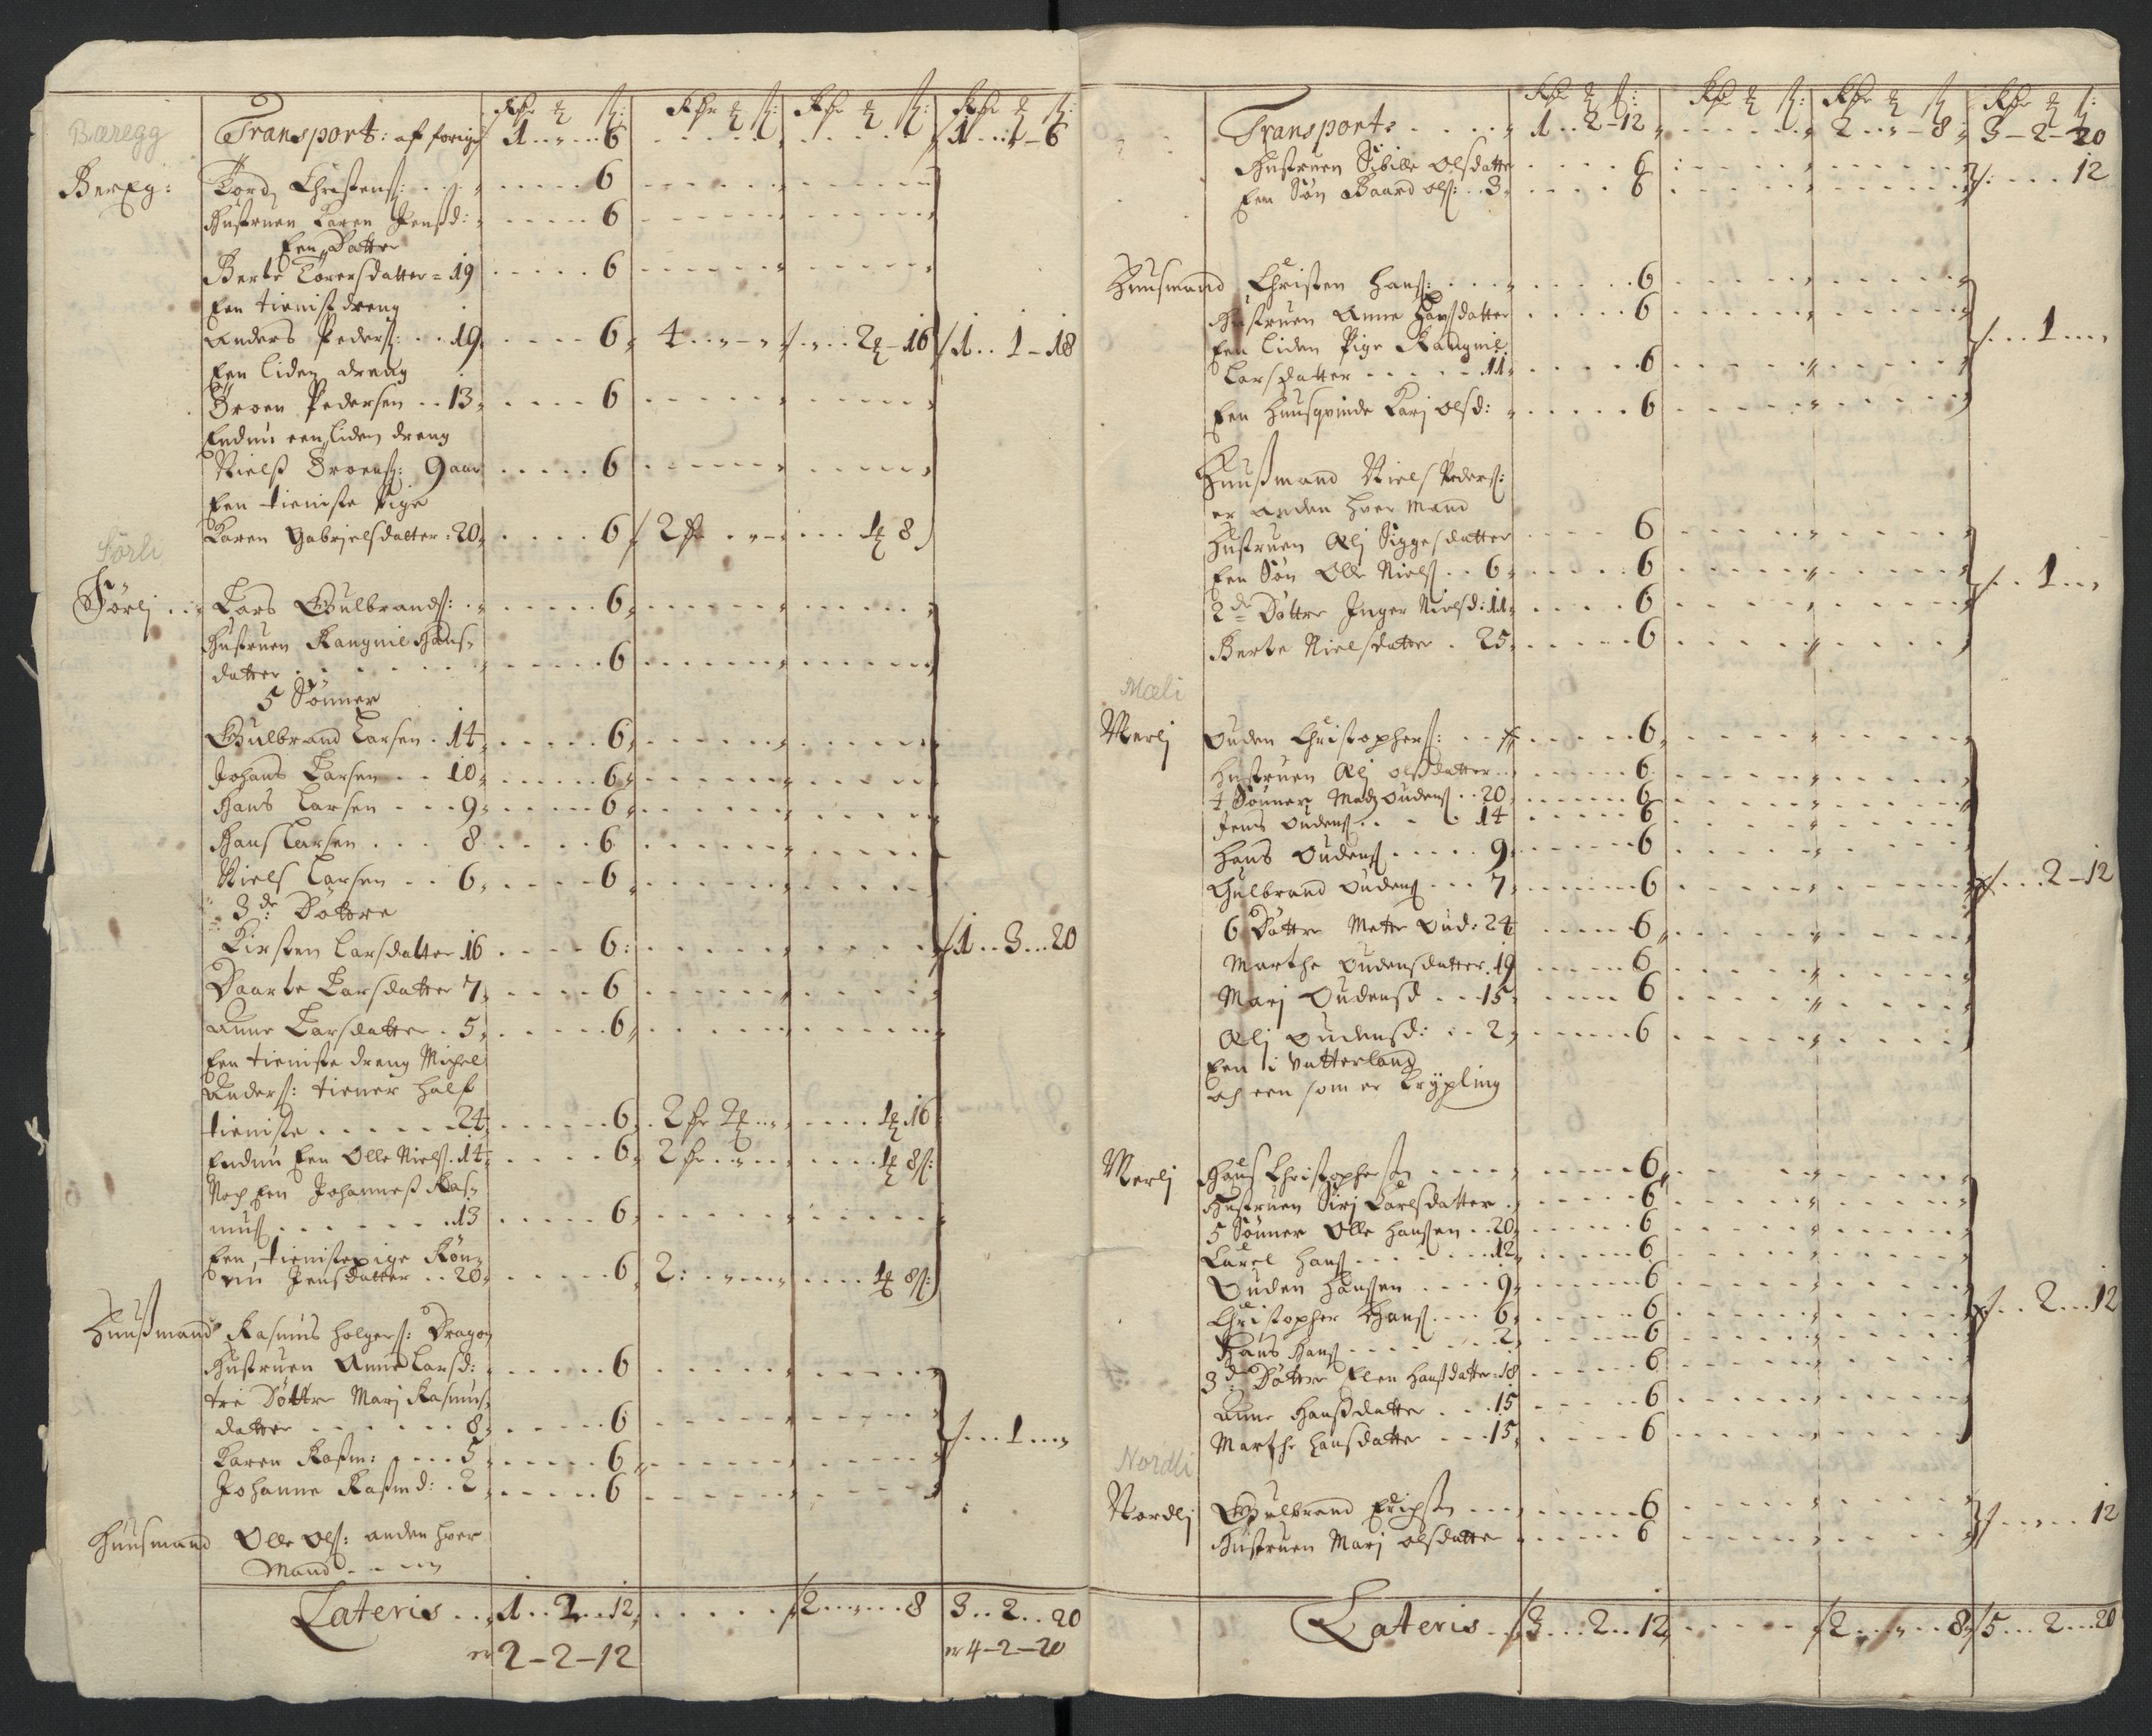 Rdr ort ß: Rdr ort ß: Rdr ort ß: Rdr ort ß:
Bæregg Transport: af forige 1 .. „ ... 6 1 ... 1 - 6
BerEg: Tord Christenß: 6
Hustruen Karen Jensd: 6
Een Datter
Berte Torersdatter = 19 6
Een tienist dreng
Anders Peders: .. 19 6 4 .. „ - „ „ .. 2 - 16 1 .. 1 - 18
Een liden dreng
Broen Pedersen .. 13 6
Endnu een liden dreng
Nielß Broenß: 9 aar 6
Een tieniste Pige
Karen Gabrielsdatter: 20 6 2 dr 1 8
Sørli
Sørlj Lars Gulbrandß: 6
Hustruen Rangnil Hans-
datter 6
5 Sønner
Gulbrand Larsen . 14 6
Johans Larsen .. 10 6
Hans Larsen ... 9 6
Hans Larsen ... 8 6
Niels Larsen .. 6 6
3de Døttre
Kirsten Larsdatter 16 6 1 .. 3 ... 20
Daarte Larsdatter 7 6
Anne Larsdatter . 5 6
Een tieniste dreng Michel
Anders: tiener half
tieniste 24 6 2 dr 2 1 16
Endnu Een Olle Nielß. 14 6 2 dr 1 8ß:
Noch Een Johanneß Ras-
muß 13 6
Een tienistepige Røn-
nu Jensdatter .. 20 6 2: 1 8ß:
Huußmand Rasmus Holgerß: Dragon
Hustruen Anne Larsd: 6
tre Døttre Marj Rasmus-
datter 8 6 1
Karen Rasm: 5 6
Johanne Rasmd: . 2 6
Huusmand Olle Olß: anden hver
Mand
Lateris .. 1 .. 2 .. 12 2 ... „ ... 8 3 .. 2 .. 20
er 2 - 2 - 12 er 4 - 2 - 20
Rdr ort ß: Rdr ort ß: Rdr ort ß Rdr ort ß:
Transport: 1 .. 2 - 12 2 .. „ - 8 3 - 2 - 20
Hustruen Sibille Olsdatter 6
Een Søn Baard Olß: .. 3 6 12
Huusmand Christen Hanß: 6
Hustruen Anne Hansdatter 6
Een liden Pige Rangnil 1
Larsdatter 11 6
Een Huusqvinde Karj Olsd: 6
Huußmand Niels Pederß:
er anden hver Mand
Hustruen Alj Siggesdatter 6
Een Søn Olle Nielß .. 6 6 1
2de Døttre Inger Nielsd: 11 6
Berte Nielsdatter . 25 6
Mæli
Merlj Ouden Christopherß: 6
Hustruen Alj Olsdatter 6
4 Sønner Madz Oudenß .. 20 6
Jens Oudenß 14 6
Hans Oudenß 9 6
Gulbrand Oudenß ... 7 6 2 - 12
6 Døttre Mette Oud: 24 6
Marthe Oudensdatter . 19 6
Marj Oudensd ... 15 6
Alj Oudensd: .. 2 6
Een i Vatterland
och een som er Krypling
Merlj Hans Christophersen 6
Hustruen Sirj Carlsdatter 6
5 Sønner Olle Hansen .. 20 6
Carel Hanß 12 6
Ouden Hanssen 9 6
Christopher Hanß ... 6 6 2 ... 12
Hans Hanß 2 6
3de Døttre Elen Hansdatter: 18 6
Anne Hansdatter 15 6
Marthe Hansdatter ... 15 6
Nordli
Nordlj Gulbrand Erichsen 6
Hustruen Marj Olsdatter 6 12
Lateris .. 3 ... 2 .. 12 2 ... „ .. 8 5 ... 2 ... 20